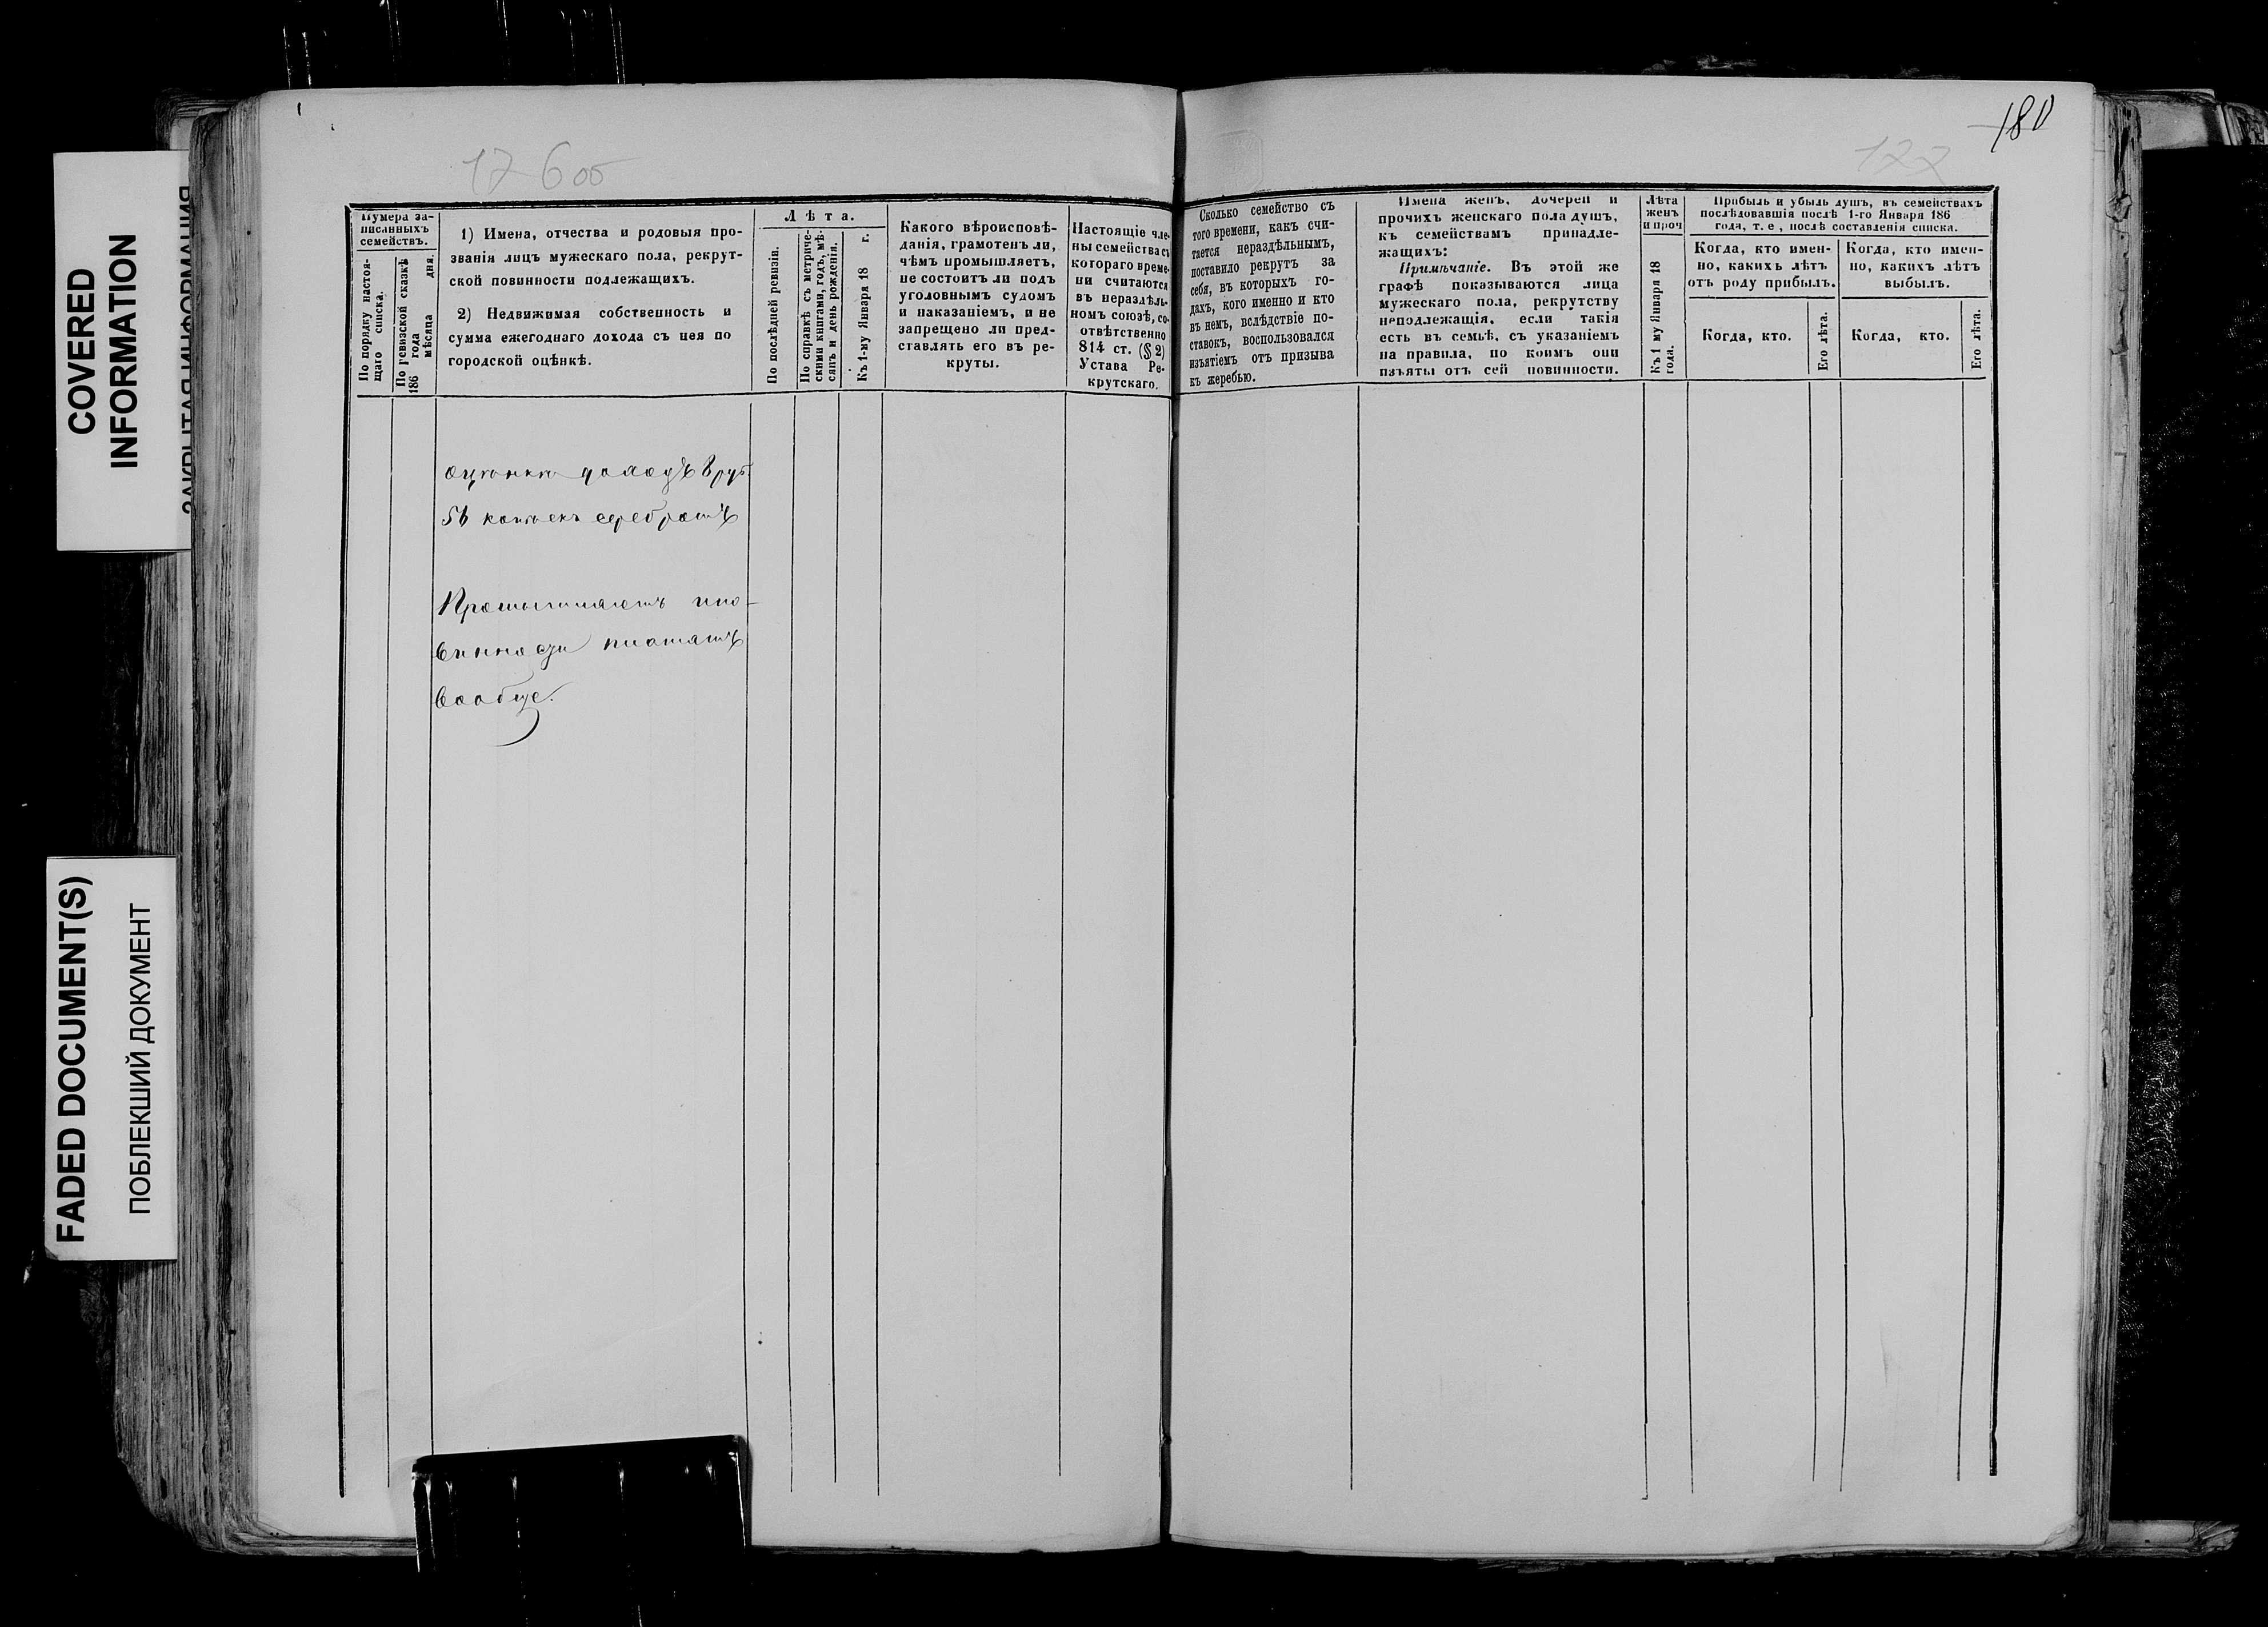 COVERED
INFORMATION
FADED DOCUMENT(S)
ПОБЛЕКШИЙ ДОКУМЕНТ
180
122
Нумера за-
писанныхъ
семействъ.
По порядку настоя-
щаго списка.
По ревизской сказкѣ
186 года мѣсяца дня.
1) Имена, отчества и родовыя про-
званія лицъ мужескаго пола, рекрут-
ской повинности подлежащихъ.
2) Недвижимая собственность и
сумма ежегоднаго дохода съ нея по
городской оцѣнкѣ.
Лѣта.
По послѣдней ревизіи.
По справкѣ съ метриче-
скими книгами, годъ, мѣ-
сяцъ и день рожденія.
Къ 1-му Января 18 г.
Какого вѣроисповѣ-
данія, грамотенъ ли,
чѣмъ промышляетъ,
не состоитъ ли подъ
уголовнымъ судомъ
и наказаніемъ, и не
запрещено ли пред-
ставлять его въ ре-
круты.
Настоящіе чле-
ны семейства съ
котораго време-
ни считаются
въ нераздѣль-
номъ союзѣ, со-
отвѣтственно
814 ст. (§ 2)
Устава Ре-
крутскаго.
Сколько семейство съ
того времени, какъ счи-
тается нераздѣльнымъ,
поставило рекрутъ за
себя, въ которыхъ го-
дахъ, кого именно и кто
въ немъ, вслѣдствіе по-
ставокъ, воспользовался
изъятіемъ отъ призыва
къ жеребью.
Имена женъ, дочерей и
прочихъ женскаго пола душъ,
къ семействамъ принадле-
жащихъ:
Примѣчаніе. Въ этой же
графѣ показываются лица
мужескаго пола, рекрутству
неподлежащія, если такія
есть въ семьѣ, съ указаніемъ
на правила, по коимъ они
изъяты отъ сей повинности.
Лѣта
женъ
и проч
Къ 1 му Января 18
года.
Прибыль и убыль душъ, въ семействахъ
послѣдовавшія послѣ 1-го Января 186
года, т. е, послѣ составленія списка.
Когда, кто имен-
но, какихъ лѣтъ
отъ роду прибылъ.
Когда, кто имен-
но, какихъ лѣтъ
выбылъ.
Когда, кто.
Его лѣта.
Когда, кто.
Его лѣта.
копѣекъ серебромъ
вообще.